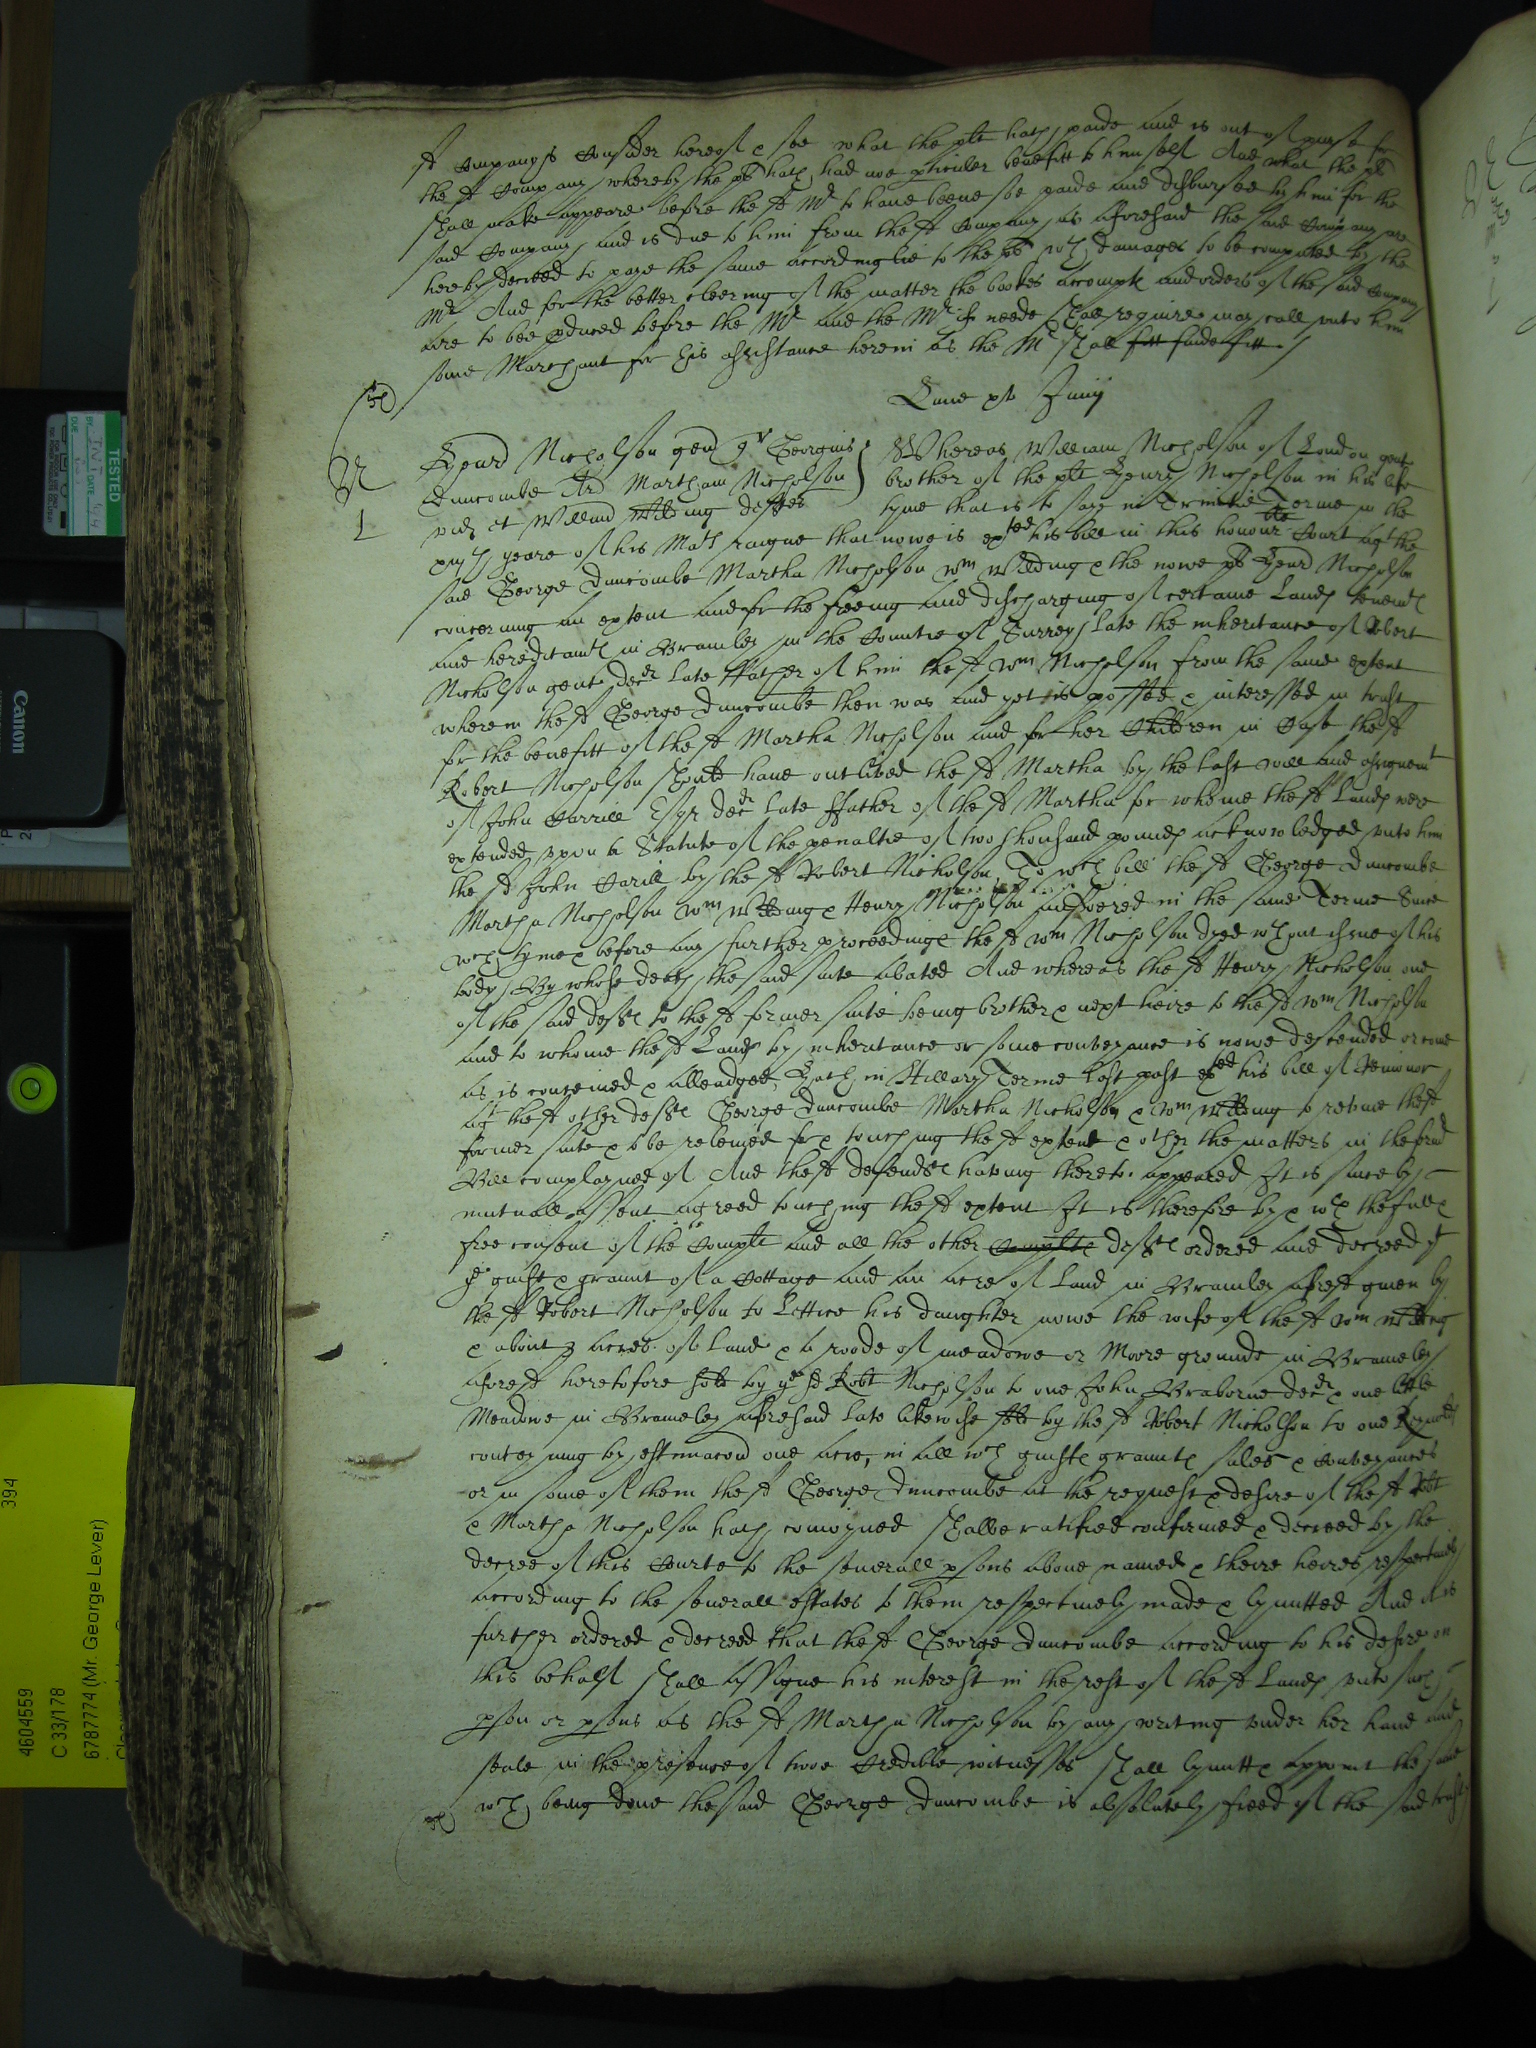 sd Company & Consider hereof & see what the plt hath paide and is out of purse for
the sd Company whereby the plt hath had noe pticuler benefitt to himselfe And what the plt
shall make appeare before the sd Mr to have beene soe paide and disbursed by him for the
said Company and is due to him from the sd Company as aforesaid the said Company are
hereby decreed to paye the same accordinglie to the plt wth damages to be computed by the
Mr And for the better cleering of the matter the bookes accompts and orders of the said Company
are to bee pduced before the Mr and the Mr if neede shall require may call unto him
some Marchant for his assistance herein as the Mr shall finde fitt
Lune xo Junij
Henr Nicholson gen qr Georgius
Duncombe Ar Martham Nicholson
vid et Willm Wilding deftes
Whereas William Nicholson of London gent
brother of the plt Henry Nicholson in his life
tyme that is to say in Trinitie Terme in the
yeare of his Mats raigne that nowe is exhted his bill in this honourble Court agt the
said George Duncombe Martha Nicholson Wm Wilding & the nowe plt Henr Nicholson
concerning an extent and for the freeing and discharging of certaine Lands tenemts
and hereditamts in Bramley in the Countie of Surrey late the inheritance of Robert
Nicholson gent decd late ffather of him the sd Wm Nicholson from the same extent
wherein the sd George Duncombe then was and yet is possed & interessed in trust
for the benefitt of the sd Martha Nicholson and for her Children in Case the sd
Robert Nicholson should have outlived the sd Martha by the last will and assignemt
of John Carrill Esqr decd late ffather of the sd Martha for whome the sd Lands were
extended upon a Statute of the penaltie of two thousand pounds acknowledged unto him
the sd John Carill by the sd Robert Nicholson, To wch bill the sd George Duncombe
Martha Nicholson Wm Wilding & Henry Nicholson answered in the same Terme Since
wch tyme & before any further proceedings the sd Wm Nicholson dyed wthout issue of his
body By whose death the said suite abated And whereas the sd Henry Nicholson one
of the said defts to the sd former suite being brother & next heire to the sd Wm Nicholson
and to whome the sd Lands by inheritance or some conveyance is nowe descended or come
as is conteined & alleadged, Hath in Hillary Terme last past exhted his bill of Revivor
agt the sd other defts George Duncombe Martha Nicholson & Wm Wilding to revive the sd
former suite & to be releived for & touching the sd extent & other the matters in the formr
Bill complayned of And the sd defendts having thereto appeared It is since by
mutuall assent agreed touching the sd extent It is therefore by & wth the full &
free consent of the Complt and all the other Complts defts ordered and decreed yt
ye guift & graunt of a Cottage and an acre of Land in Bramley aforesd given by
the sd Robert Nicholson to Lettice his daughter nowe the wife of the sd Wm Wilding
& about 3 acres of Land & a roode of meadowe or Moore grounde in Brameley
aforesd heretofore sold by ye sd Robt Nicholson to one John Braborne decd & one little
Meadowe in Brameley aforesaid late likewise sold by the sd Robert Nicholson to one Reynolds
conteyning by estimacon one acre, in all wch guifts graunts sales & conveyances
or in some of them the sd George Duncombe at the request & desire of the sd Robt
& Martha Nicholson hath conioyned shalbe ratified confirmed & decreed by the
decree of this Courte to the severall psons above named & theire heires respectively
according to the severall estates to them respectively made & lymitted And it is
further ordered & decreed that the sd George Duncombe according to his desire on
this behalf shall assigne his interest in the rest of the sd Lands unto such
pson or psons as the sd Martha Nicholson by any writing under her hand and
seale in the presence of twoe Credible witnesses shall lymitt & appoint the same
wch being done the said George Duncombe is absolutely freed of the said trust
394
4604559
C 33/178
6787774 (Mr. George Lever)
Canon
TESTED